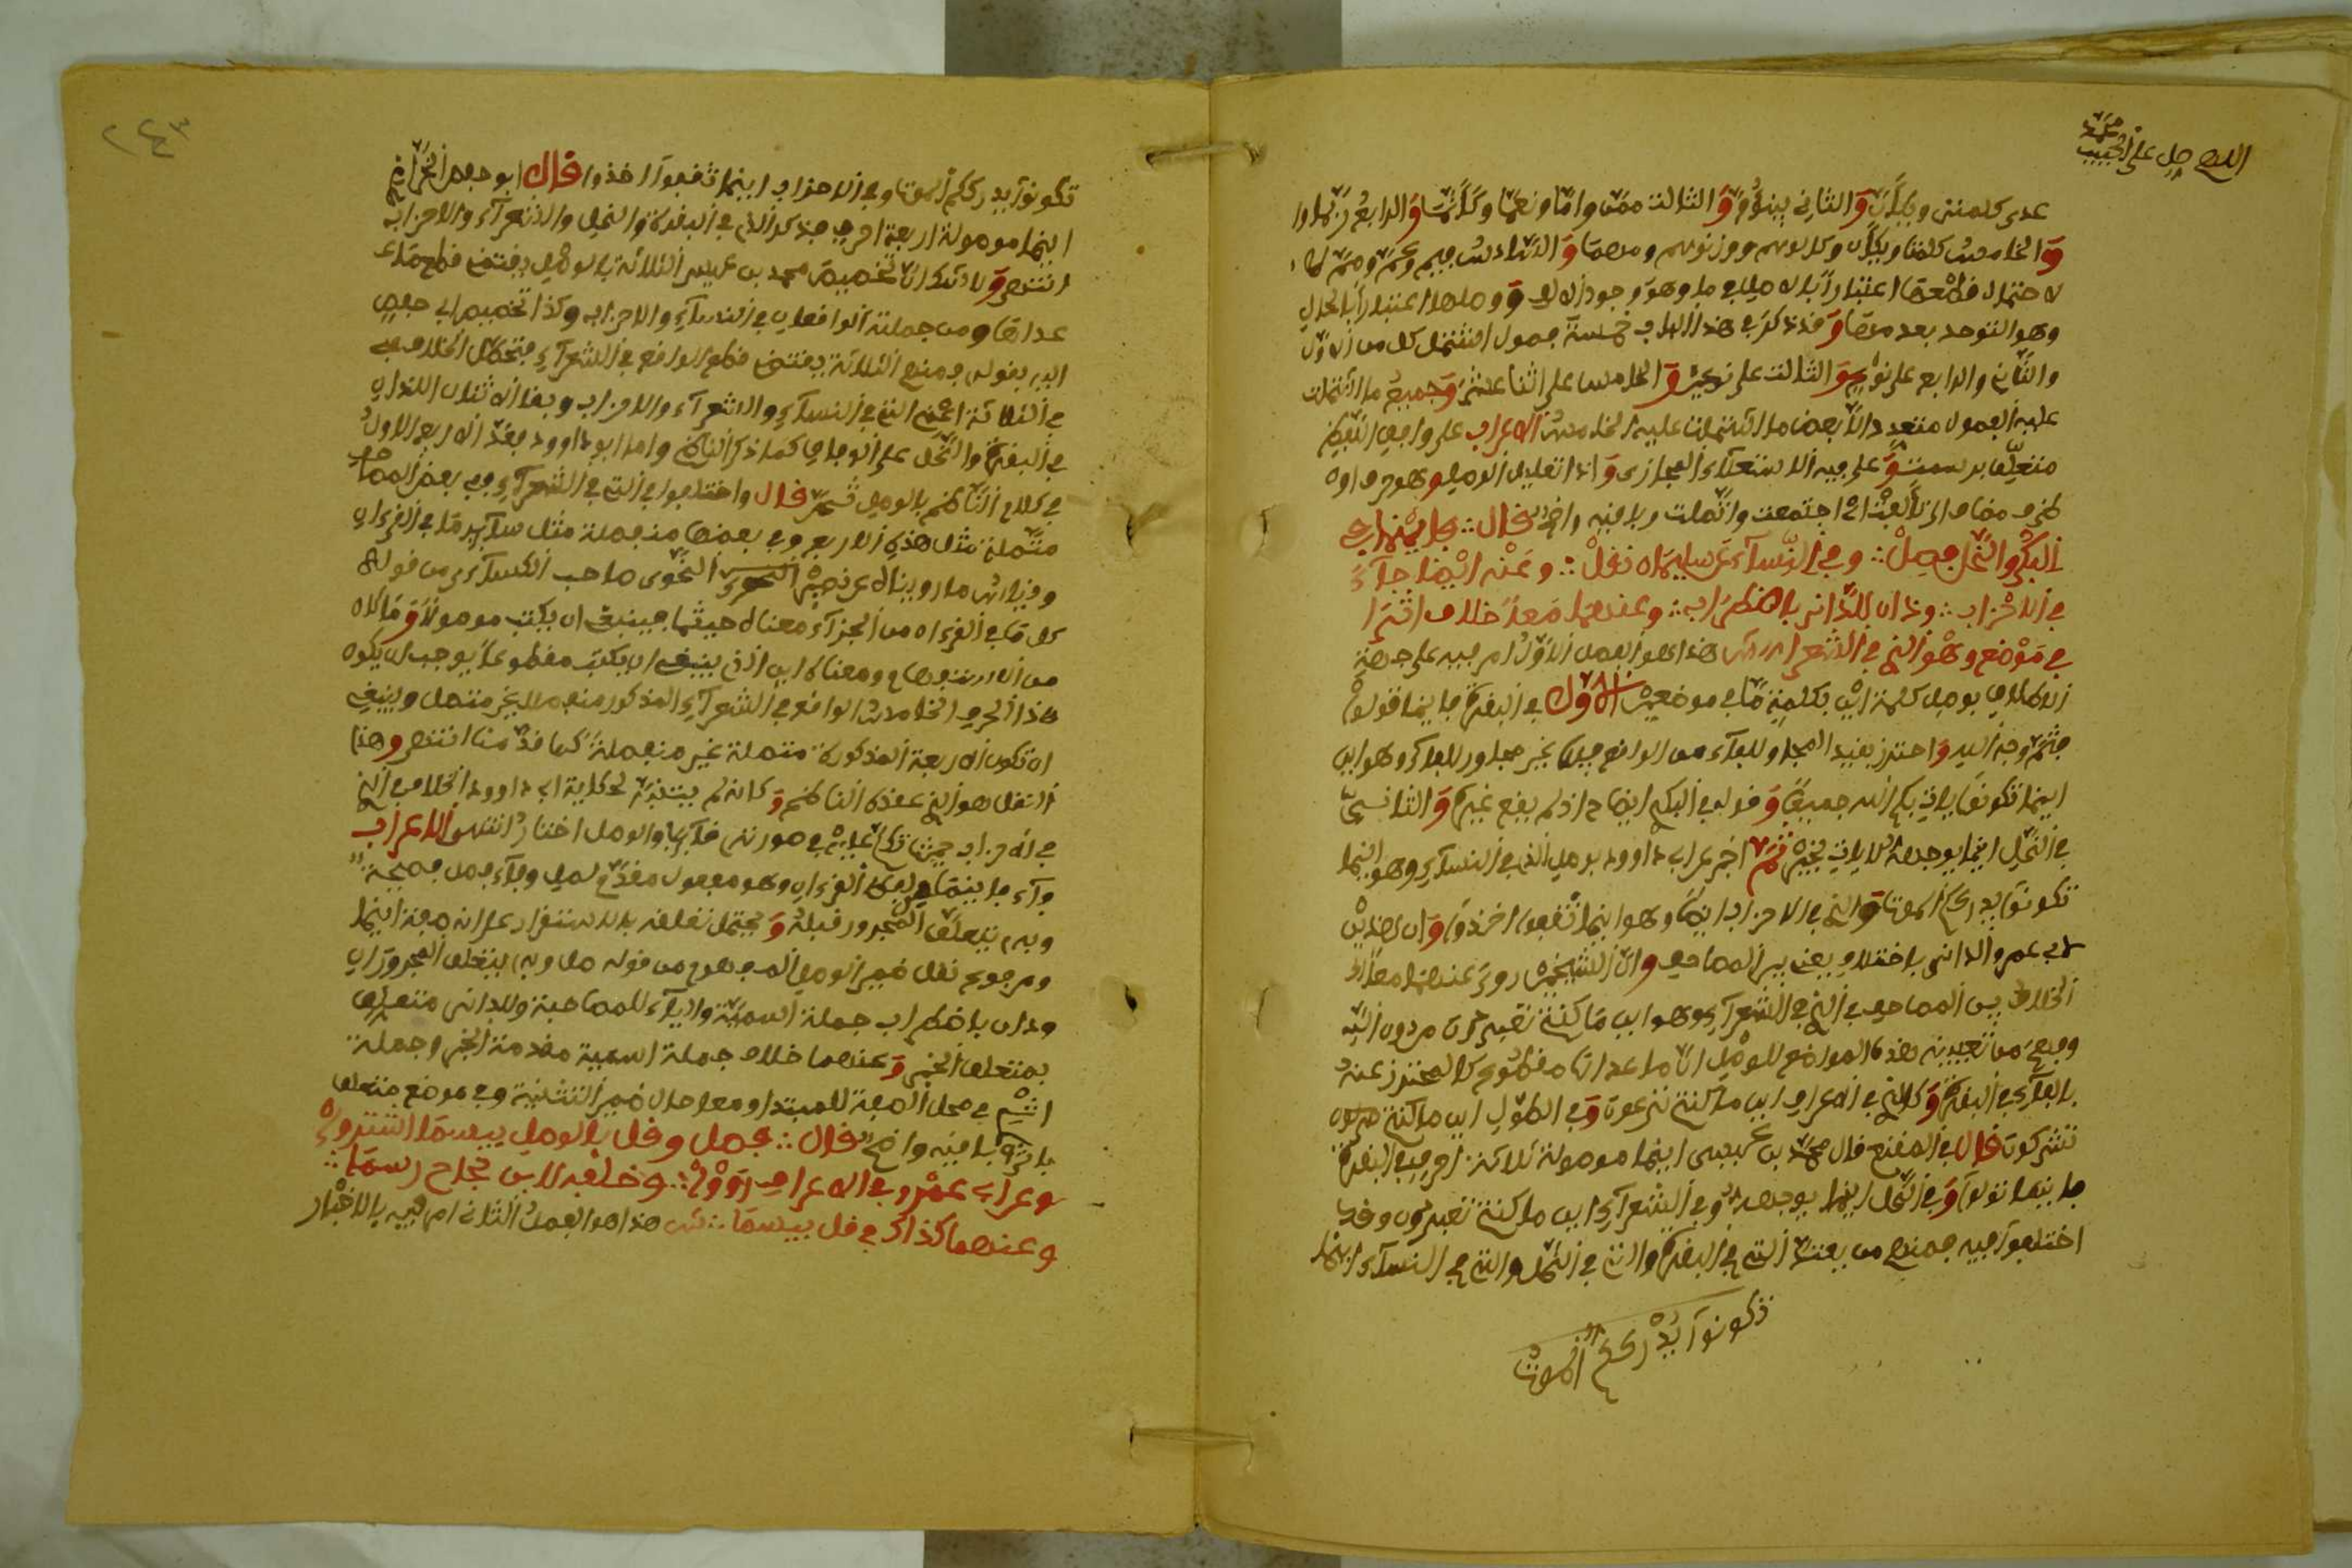 اللهم صل على الحبيب محمد
عدى كلمتين ويكأن والثانى يبنؤم والثالث ممن واما ونعما وكأنما والرابع ربما و
والخامس كلمتا ويكأن وكالوهم ووزنوهم ومهما والسادس فيم وعم ومم
لاحتمال قطعها اعتبارا بالاصل
وهو التوحد بعد وقد ذكر فى هذا الباب خمسة فصول اشتمل كل من الاول
والثانى والرابع على نوع والثالث على نوعين والخامس على اثنا عشر وجميع ما اشتملت
عليه الفصول متعدد الا بعض ما اشتملت عليه الخامس الاعراب على واضح
متعلق على فيه للاستعلاء المجازى و الوصل وهو حرف
ظرف مضاف الى تألفت اى اجتمعت واتصلت وباقيه واضح قال فأينما فى
البكر والنحل فصل وفى النساء عن سليمان نقل وعنه ايضا جاء
فى الاحزاب وذان للدانى باضطراب وعنهما معا خلاف اثرا
فى موضع وهو الذى فى الشعرا ش هذا هو الفصل الاول امر فيه على جهة
الاطلاق بوصل كلمة اين بكلمة ما فى موضعين الاول فى البقرة فأينما تولوا
فثم وجه الله واحترز بقيد المجاور للفاء من الواقع فيها غير مجاور للفاء وهو اين
اينما تكونوا يات بكم الله جميعا وقوله فى البكر ايضاح اذ لم يقع غيره والثانى
فى النحل اينما يوجهه لا يات بخير ثم اخبر عن ابى داوود بوصل الذى فى النساء وهو اينما
تكونوا يدرككم الموت والذى فى الاحزاب ايضا وهو اينما ثقفوا اخذوا وان هذين
لابى عمرو الدانى باختلاف يعنى بين المصاحف وان الشيخين روى عنهما معا
الخلاف بين المصاحف فى الذى فى الشعراء وهو اين ما كنتم تعبدون من دون الله
وفهم من تعيينه هذه المواضع للوصل ان ما عداها مقطوع كالمحترز عنه
بالفاء فى البقرة وكالذى فى الاعراف اين ما كنتم تدعون وفى الطول اين ما كنتم
تشركون قال فى المقنع قال محمد بن عيسى اينما موصولة ثلاثة احرف فى البقرة
فاينما تولوا وفى النحل اينما يوجهه وفى الشعراء اين ما كنتم تعبدون وقد
اختلفوا فيه فمنهم من يعد التى فى البقرة والتى فى النحل والتى فى النساء اينما
تكونوا يدرككم الموت
٢٤٣
تكونوا يدرككم الموت وفى الاحزاب اينما ثقفوا اخذوا قال ابو حفص الخزاز
اينما موصولة اربعة احرف فذكر الذى فى البقرة والنحل والشعراء والاحزاب
انتهى ولا شك ان تخصيص محمد بن عيسى الثلاثة بالوصل يقتضى قطع ما
عداها ومن جملته الواقعان فى النساء والاحزاب وكذا تخصيص ابى حفص
بقوله ومنع الثلاثة يقتضى قطع الواقع فى الشعراء فتحصل الخلاف
فى الثلاثة اعنى التى فى النساء والشعراء والاحزاب وبقا الاثنان اللذان
فى البقرة والنحل على الوفاق كما ذكر الناظم واما ابو داوود فعد الاربع الاول
فى كلام الناظم بالوصل ثم قال واختلفوا فى التى فى الشعراء ففى بعض المصاحف
متصلة مثل هذه الاربع وفى بعضها منفصلة مثل سائر ما فى القرءان
وقياس ما رويناه عن نصير النحوى صاحب الكسائى من قوله
كل ما فى القرءان من الجزاء معناه حيثما فينبغى ان يكتب موصولا وما كان
من الاستفهام ومعناه اين الذى ينبغى ان يكتب مقطوعا يوجب ان يكون
هذا الحرف الخامس الواقع فى الشعراء المذكور منفصلا غير متصل وينبغى
ان تكون الاربعة المذكورة متصلة غير منفصلة كما قدمنا انتهى وهذا
النقل هو الذى عقده الناظم وكانه لم يتنبه لحكاية ابى داوود الخلاف فى الذى
فى الاحزاب حيث تكلم عليه فى سورته قائلا والوصل اختار انتهى الاعراب
وفاء فاينما لفظ القرءان وهو مفعول مقدم لصل وفاء فصل فصيحة
وبه يتعلق المجرور قبله ويحتمل تعلقه بالاستقرار على انه صفة اينما
ومرفوع نقل ضمير الوصل المفهوم من قوله صل وبه يتعلق المجروران
وذان باضطراب جملة اسمية والباء للمصاحبة وللدانى متعلق
بمتعلق الخبر وعنهما خلاف جملة اسمية مقدمة الخبر وجملة
اثر فى محل الصفة للمبتدا ومعا حال ضمير التثنية وفى موضع متعلق
باثر وباقيه واضح قال فصل وقل بالوصل بيسما اشتروا
وعن ابى عمرو فى الاعراف رووا وخلفه لابن نجاح رسما
وعنهما كذاك فى قل بيسما ش هذا هو الفصل الثانى امر فيه بالاخبار